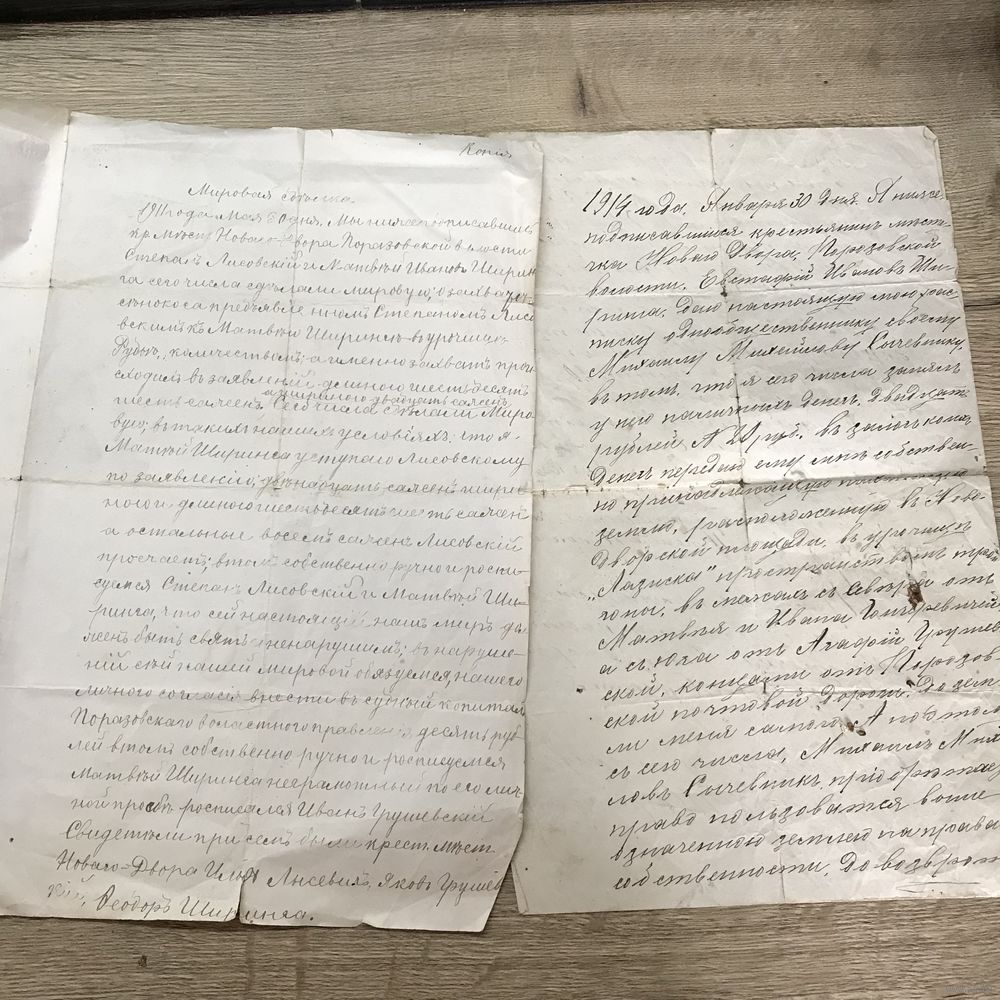 Копія
Мировая сдѣлка
1911 года мая 20 дня. Мы нижеподписавшиеся
кр. мѣст. Новаго-Двора Поразовской волости
Степанъ Лисовскій и Матвѣй Ивановъ Ширин
га сего числа сдѣлали мировую, о захватѣ
сѣнокоса предъявленномъ Степаномъ Лисо
вскимъ къ Матвѣю Ширинсю въ урочищѣ
количествомъ; а именно захватъ прои
сходилъ въ заявленій, длиного шестьдесятъ
шесть сажен. а шириного двадцать сажен.
Сего числа сдѣлали Миро
вую; въ такихъ нашихъ условіяхъ: что я
Матвѣй Ширинга уступаю Лисовскому
по заявленію, двѣнадцать сажен шири
ною и длиною шестьдесятъ шесть сажен
а остальные восемь сажен Лисовскій
просчаетъ; в томъ собственно ручно и роспи
суемся Степанъ Лисовскій и Матвѣй Ши-
ринга, что сей настоящій наш миръ дол
жен быть святъ и ненарушимъ; въ наруше-
ній сей нашей мировой обязуемся, нашего
личного согласія внести въ судный капиталъ
Поразовскаго волостного правленія, десять руб
лей в томъ собственно ручно и росписуемся
Матвѣй Ширинга неграмотный по его лич
ной просбѣ росписался Иванъ Грушевскій
Свидетѣли при семъ были крест. мѣст.
Новаго-Двора Илья Яковъ Грушев
кій, Ѳеодоръ Ширинга.
1914 года, Января 30 дня. Я ниже
подписавшійся крестьянин мѣстѣ
чка Новаго Двора, Порозовской
волости, Евстафій Ивановъ Ши-
ринга, даю настоящую мою рас
писку однообщественнику своему
Михаилу Михейлову Сычевнику,
въ томъ, что я сего числа занялъ
у него наличныхъ денег, двадцать
рублей, А 20 руб., въ залогъ коихъ
денег передаю ему мнѣ собствен
но принадлежащую
землю, расположенную въ Ново-
дворской площади, въ урочищѣ
„Лазиска" пространствомъ
въ межахъ съ сѣвера отъ
Матвѣя и Ивана Григоревичей
а съ юга отъ Агафій Грушев
ской, концами отъ Порозов
ской почтовой дороги, до зем
ли меня самого. А по этому
съ сего числа, Михаилъ Миха
ловъ Сычевникъ, приобрѣтае
право пользоватся выше
означенною землею на правах
собственности, до возврат